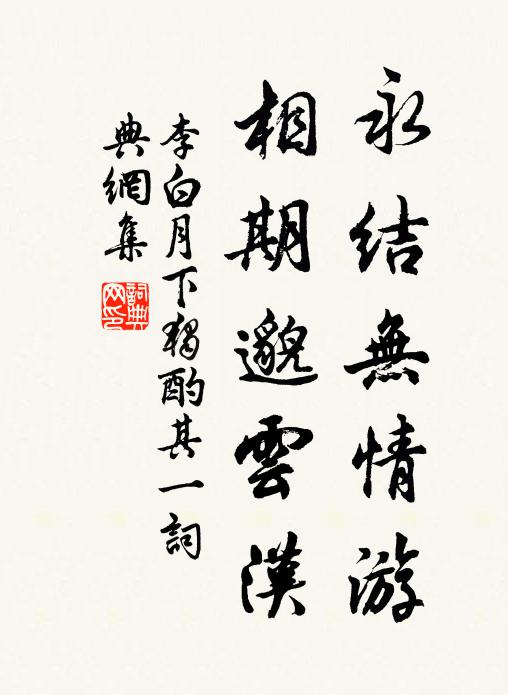 永结無情游
相期邈雲漢
李白月下獨酌其一詞
典網集
詞典网印